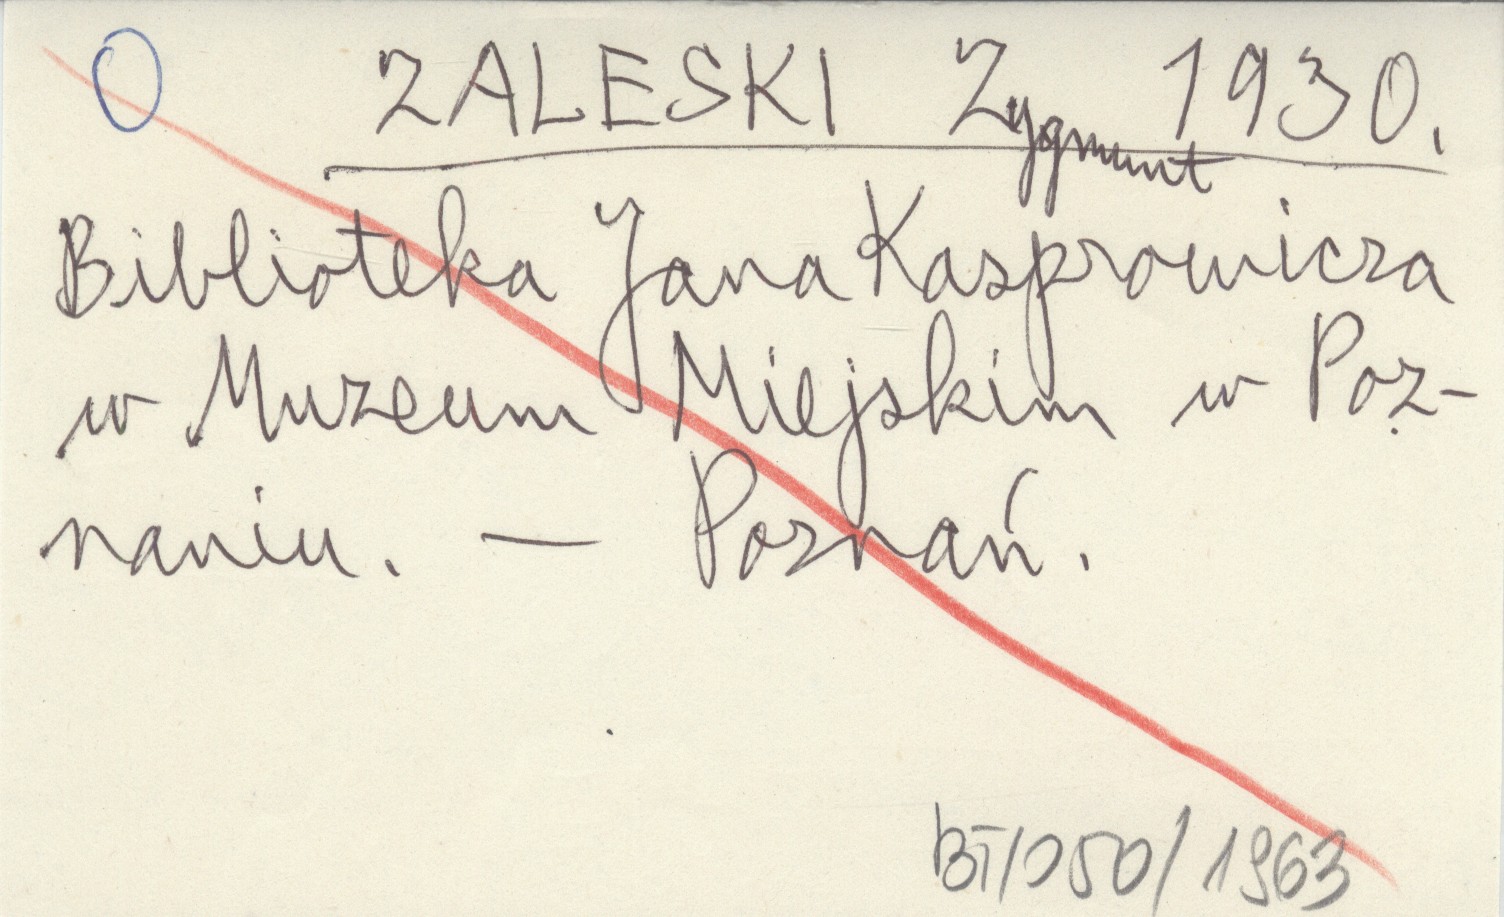 O ZALESKI Zygmunt 1930.
Biblioteka Jana Kasprowicza
w Muzeum Miejskim w Poz-
naniu. — Poznań.
BT/050/1963